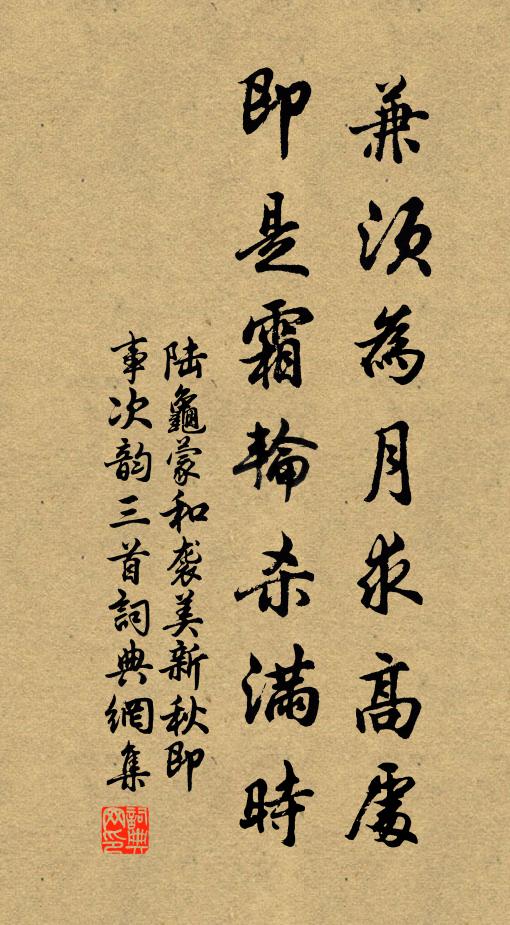 兼須為月求高處
即是霜輪杀滿時
陆龜蒙和袭美新秋即
事次韵三首詞典網集
詞典网印